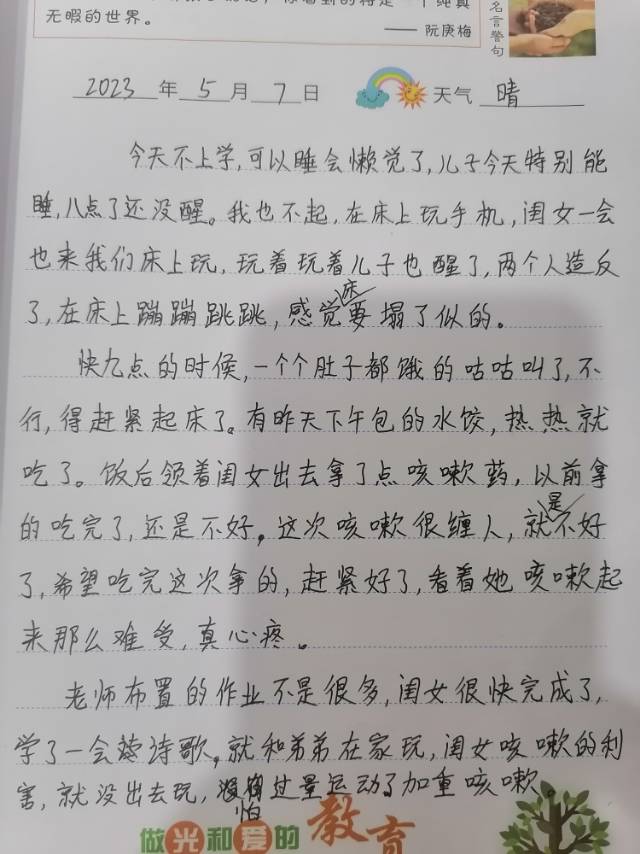 无暇的世界。
—— 阮庚梅
名言警句
2023 年 5 月 7 日 天气 晴
今天不上学,可以睡会懒觉了,儿子今天特别能
睡,八点了还没醒。我也不起,在床上玩手机,闺女一会
也来我们床上玩,玩着玩着儿子也醒了,两个人造反
了,在床上蹦蹦跳跳,感觉床要塌了似的。
快九点的时候,一个个肚子都饿的咕咕叫了,不
行,得赶紧起床了。有昨天下午包的水饺,热热就
吃了。饭后领着闺女出去拿了点咳嗽药,以前拿
的吃完了,还是不好。这次咳嗽很缠人,就是不好
了,希望吃完这次拿的,赶紧好了,看着她咳嗽起
来那么难受,真心疼。
老师布置的作业不是很多,闺女很快完成了,
学了一会诗歌。就和弟弟在家玩,闺女咳嗽的利
害,就没出去玩,怕过量运动了加重咳嗽。
做光和爱的教育